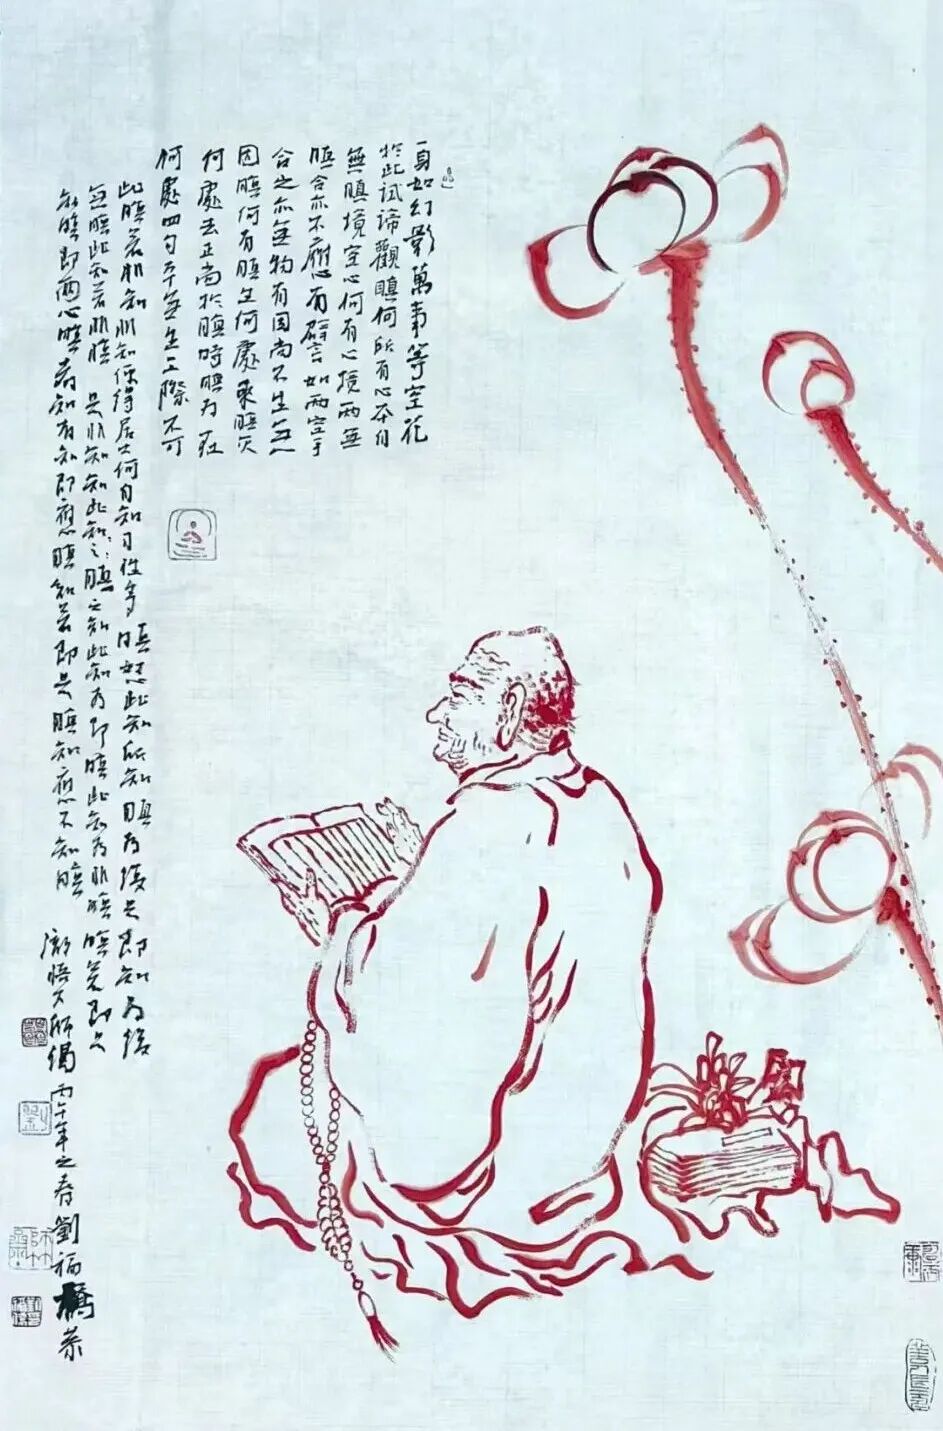 一身如幻影萬事等空花
於此試諦觀瞋何所有心本自
無瞋境空心何有心境兩無
瞋合亦不應有譬如兩空手
合之亦無物有因尚不生無
因瞋何有瞋生何處來瞋灭
何處去正當於瞋時瞋为在
何處四句本無生三際不可
此瞋若非知非知 得居士何自知习性 此知所知瞋为 是即知为
無瞋此知若非瞋 是非知知此知之瞋之知此知为即瞋此知为非瞋瞋若即
知瞋即兩心瞋若知有知即應瞋知若即是瞋知應不知瞋 徹悟大師偈 丙午年之春劉福橋恭